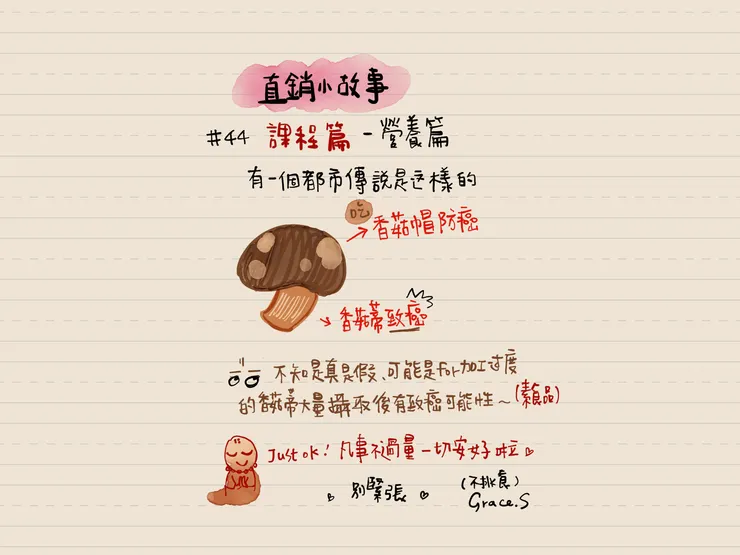 直銷小故事
#44 課程篇-營養篇
有一個都市傳說是這樣的
吃
香菇帽防癌
香菇蒂致癌
不知是真是假、可能是for加工過度
的香菇蒂大量攝取後有致癌可能性~(素食品)
Just ok! 凡事不過量一切安好啦
別緊張
(不挑食)
Grace.S